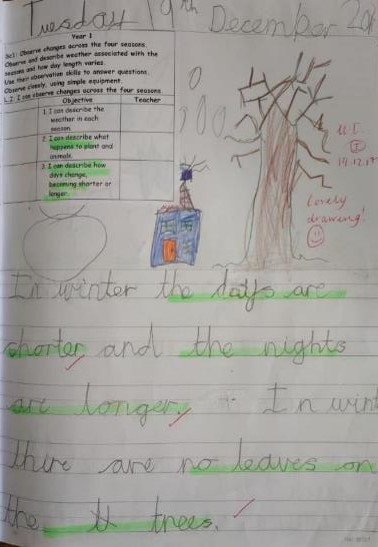 Tuesday 19th December 201
Year 1
Sc1: Observe changes across the four seasons.
Observe and describe weather associated with the
seasons and how day length varies.
Use their observation skills to answer questions.
Observe closely, using simple equipment.
L.I. I can observe changes across the four seasons
Objective Teacher
1. I can describe the
weather in each
season.
2. I can describe what
happens to plant and
animals.
3. I can describe how
days change,
becoming shorter or
longer.
19.12.17
Lovely
drawing!
In winter the days are
shorter and the nights
are longer. In wint
there are no leaves on
the tt trees.